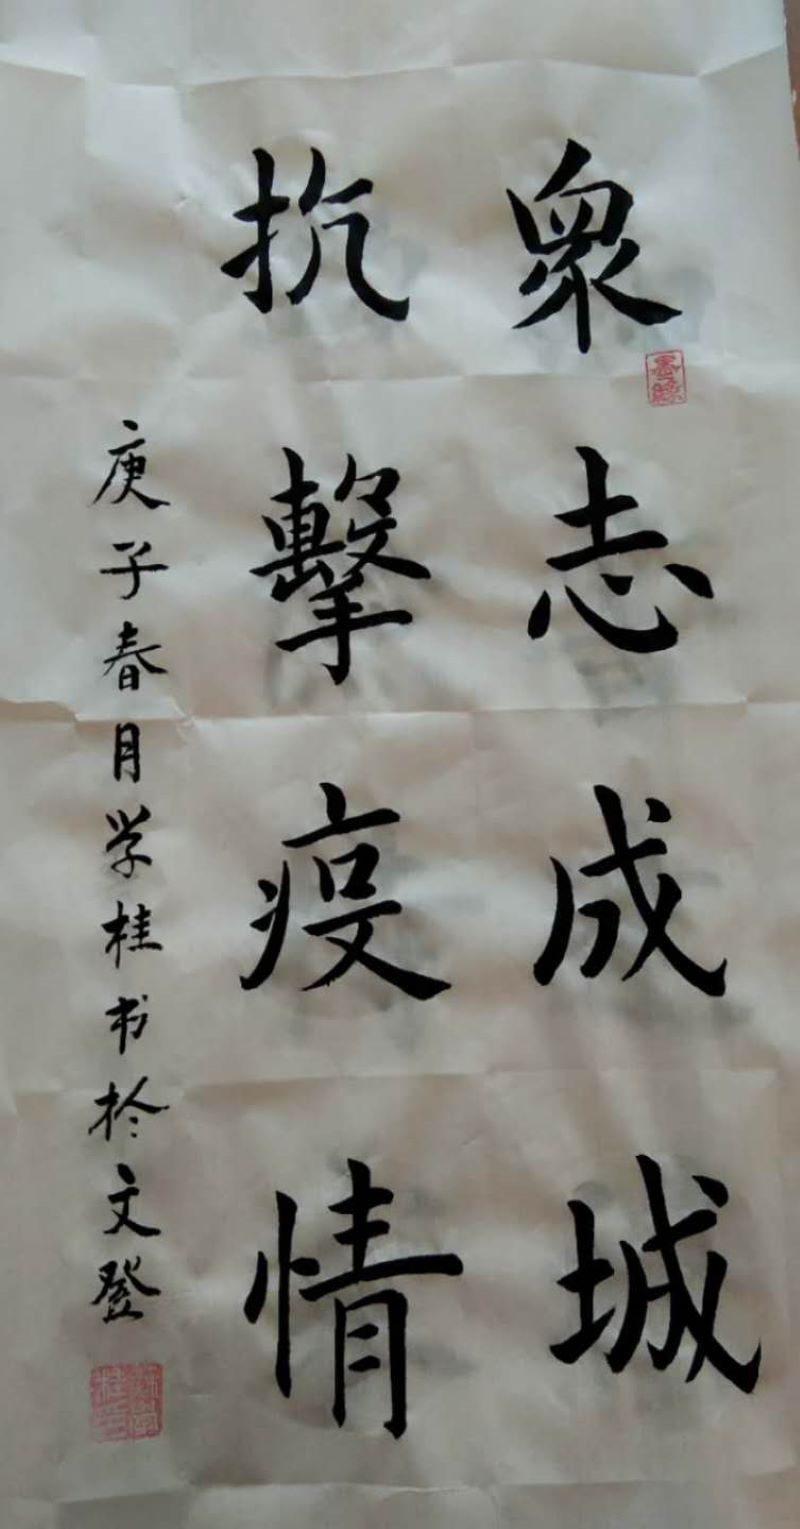 眾志成城
抗擊疫情
庚子春月学桂书於文登